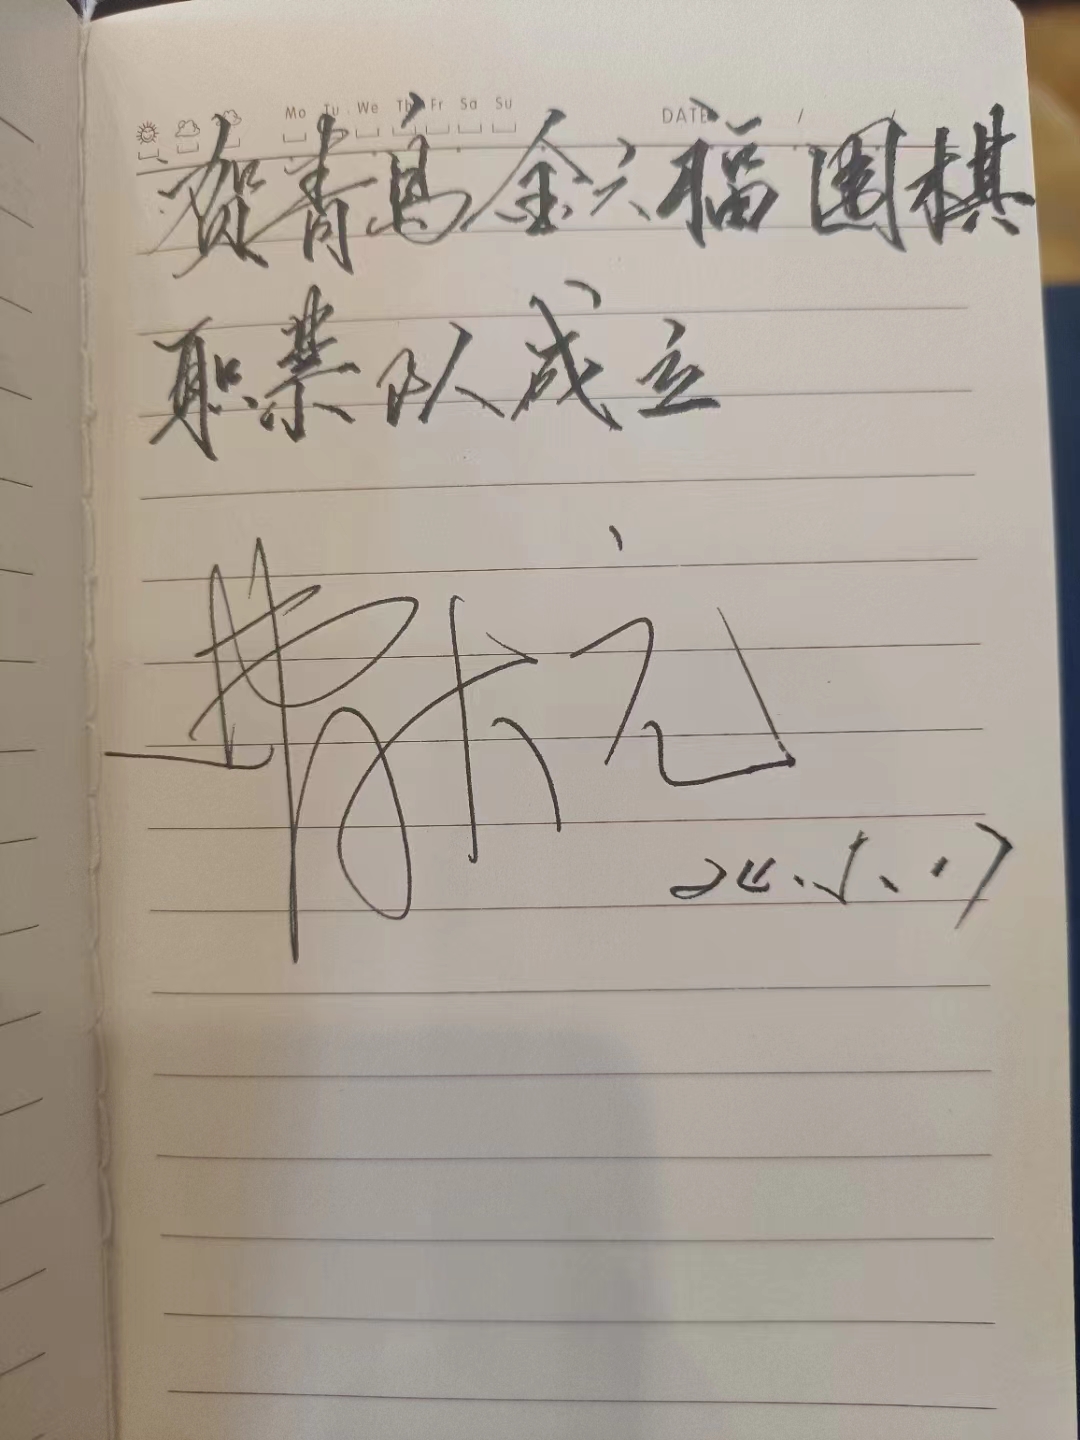 Mo Tu We Th Fr Sa Su DATE / /
贺青岛金六福围棋
职业队成立